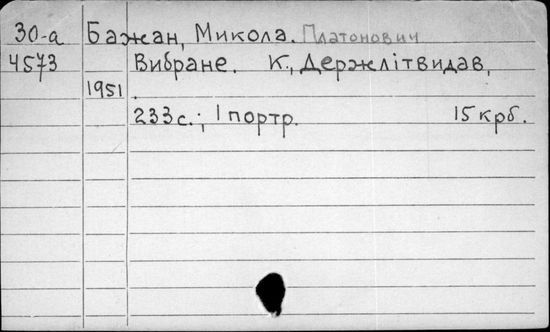 30-а Бажан, Микола. Платонович
4573 Вибране. К., Держлітвидав,
1951.
233 с.; 1 портр. 15 крб.